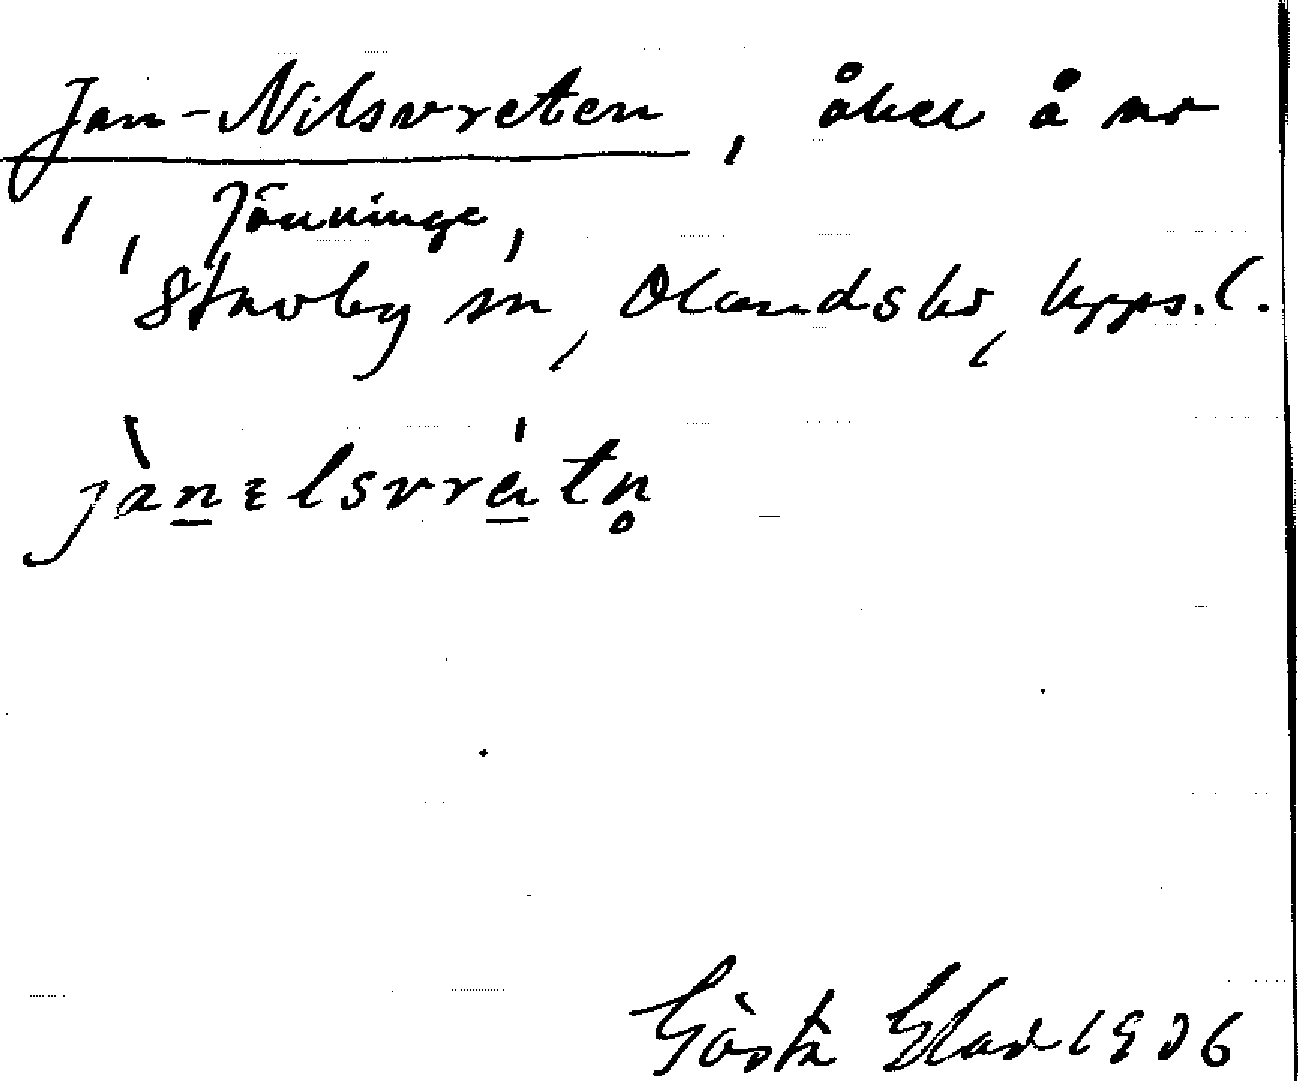 Jan-Nilsvreten, åker å nr
1, Jönninge,
Stavby sn, Olandshd, Upps.l.
jànɛlsvrátn̥
Gösta 1906